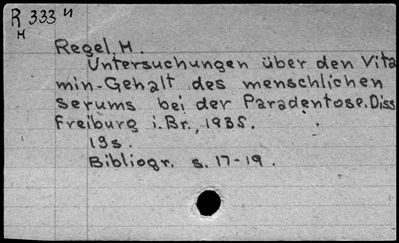 R 333 u
H
Regel, H.
Untersuchungen über den Vita
min-Gehalt des menschlichen
Serums bei der Paradentose. Diss
Freiburg i. Br., 1935.
19s.
Bibliogr. s. 17-19.